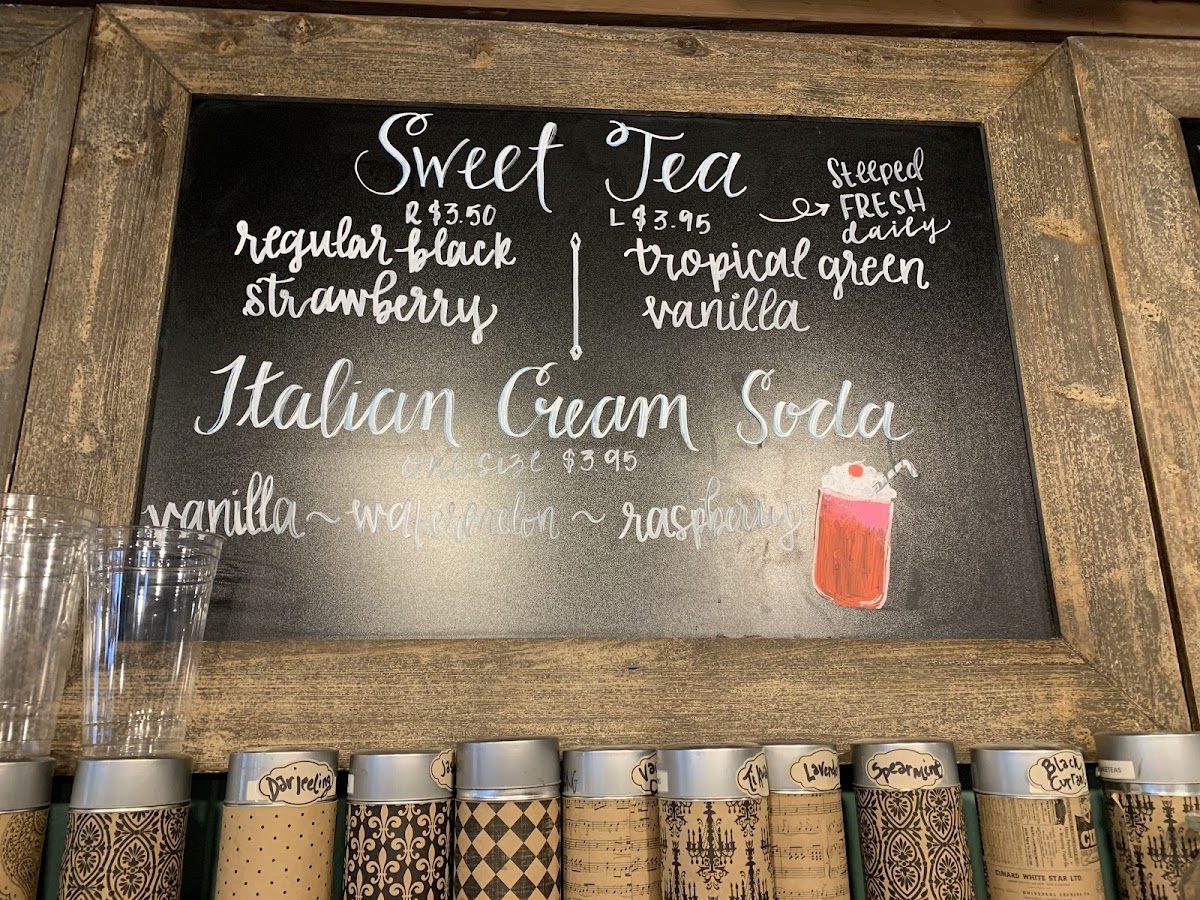 Sweet Tea
R $3.50 L $3.95
steeped
FRESH
daily
regular black
strawberry
tropical green
vanilla
Italian Cream Soda
one size $3.95
vanilla ~ watermelon ~ raspberry
Darjeeling
Lavender
Spearmint
Black
Currant
CUNARD WHITE STAR LTD.